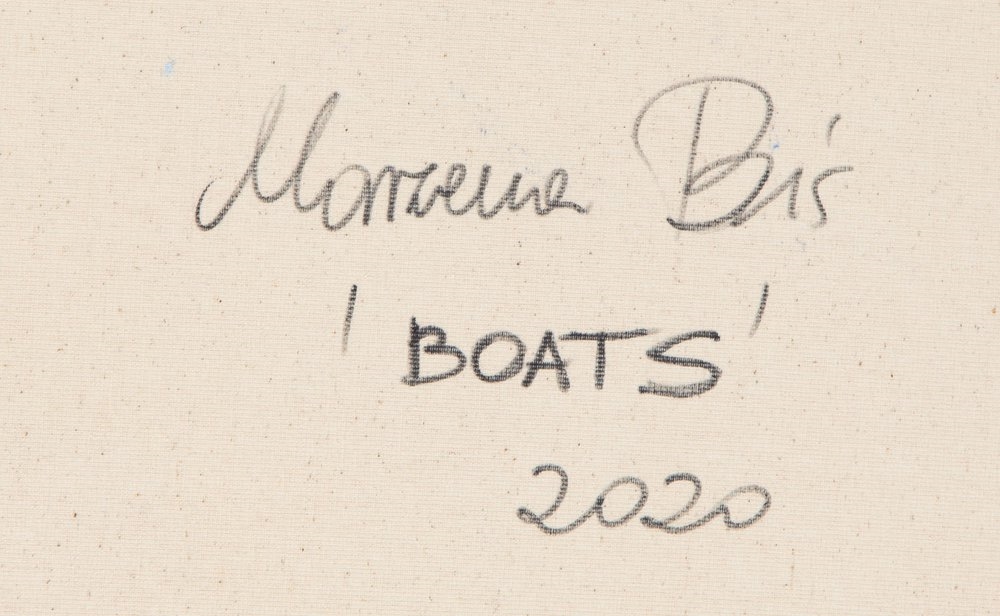 Marzena Biś
'BOATS'
2020